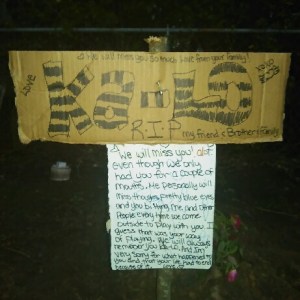 We will miss you so much love from your family!
LOVE
Ka-Lo
R.I.P
my friend & Brother & family
We will miss you! alot
Even though we only
had you for a couple of
months, Me personally will
miss those pretty blue eyes
and you biting me and other
People every time we come
outside to play with you
guess that was your way
of playing. We will always
remember you Ka-Lo. And I'm
very sorry for what happened to
you and that your life had to end
because of it